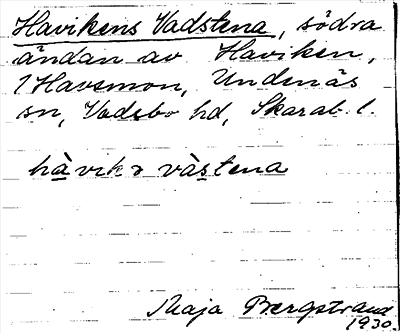 Havikens Vadstena, södra
ändan av Haviken,
Havsmon, Undenäs
sn, Vadsbo hd, Skarab. l.
hàvikɜ vàstena
Maja Bergstrand
1930.